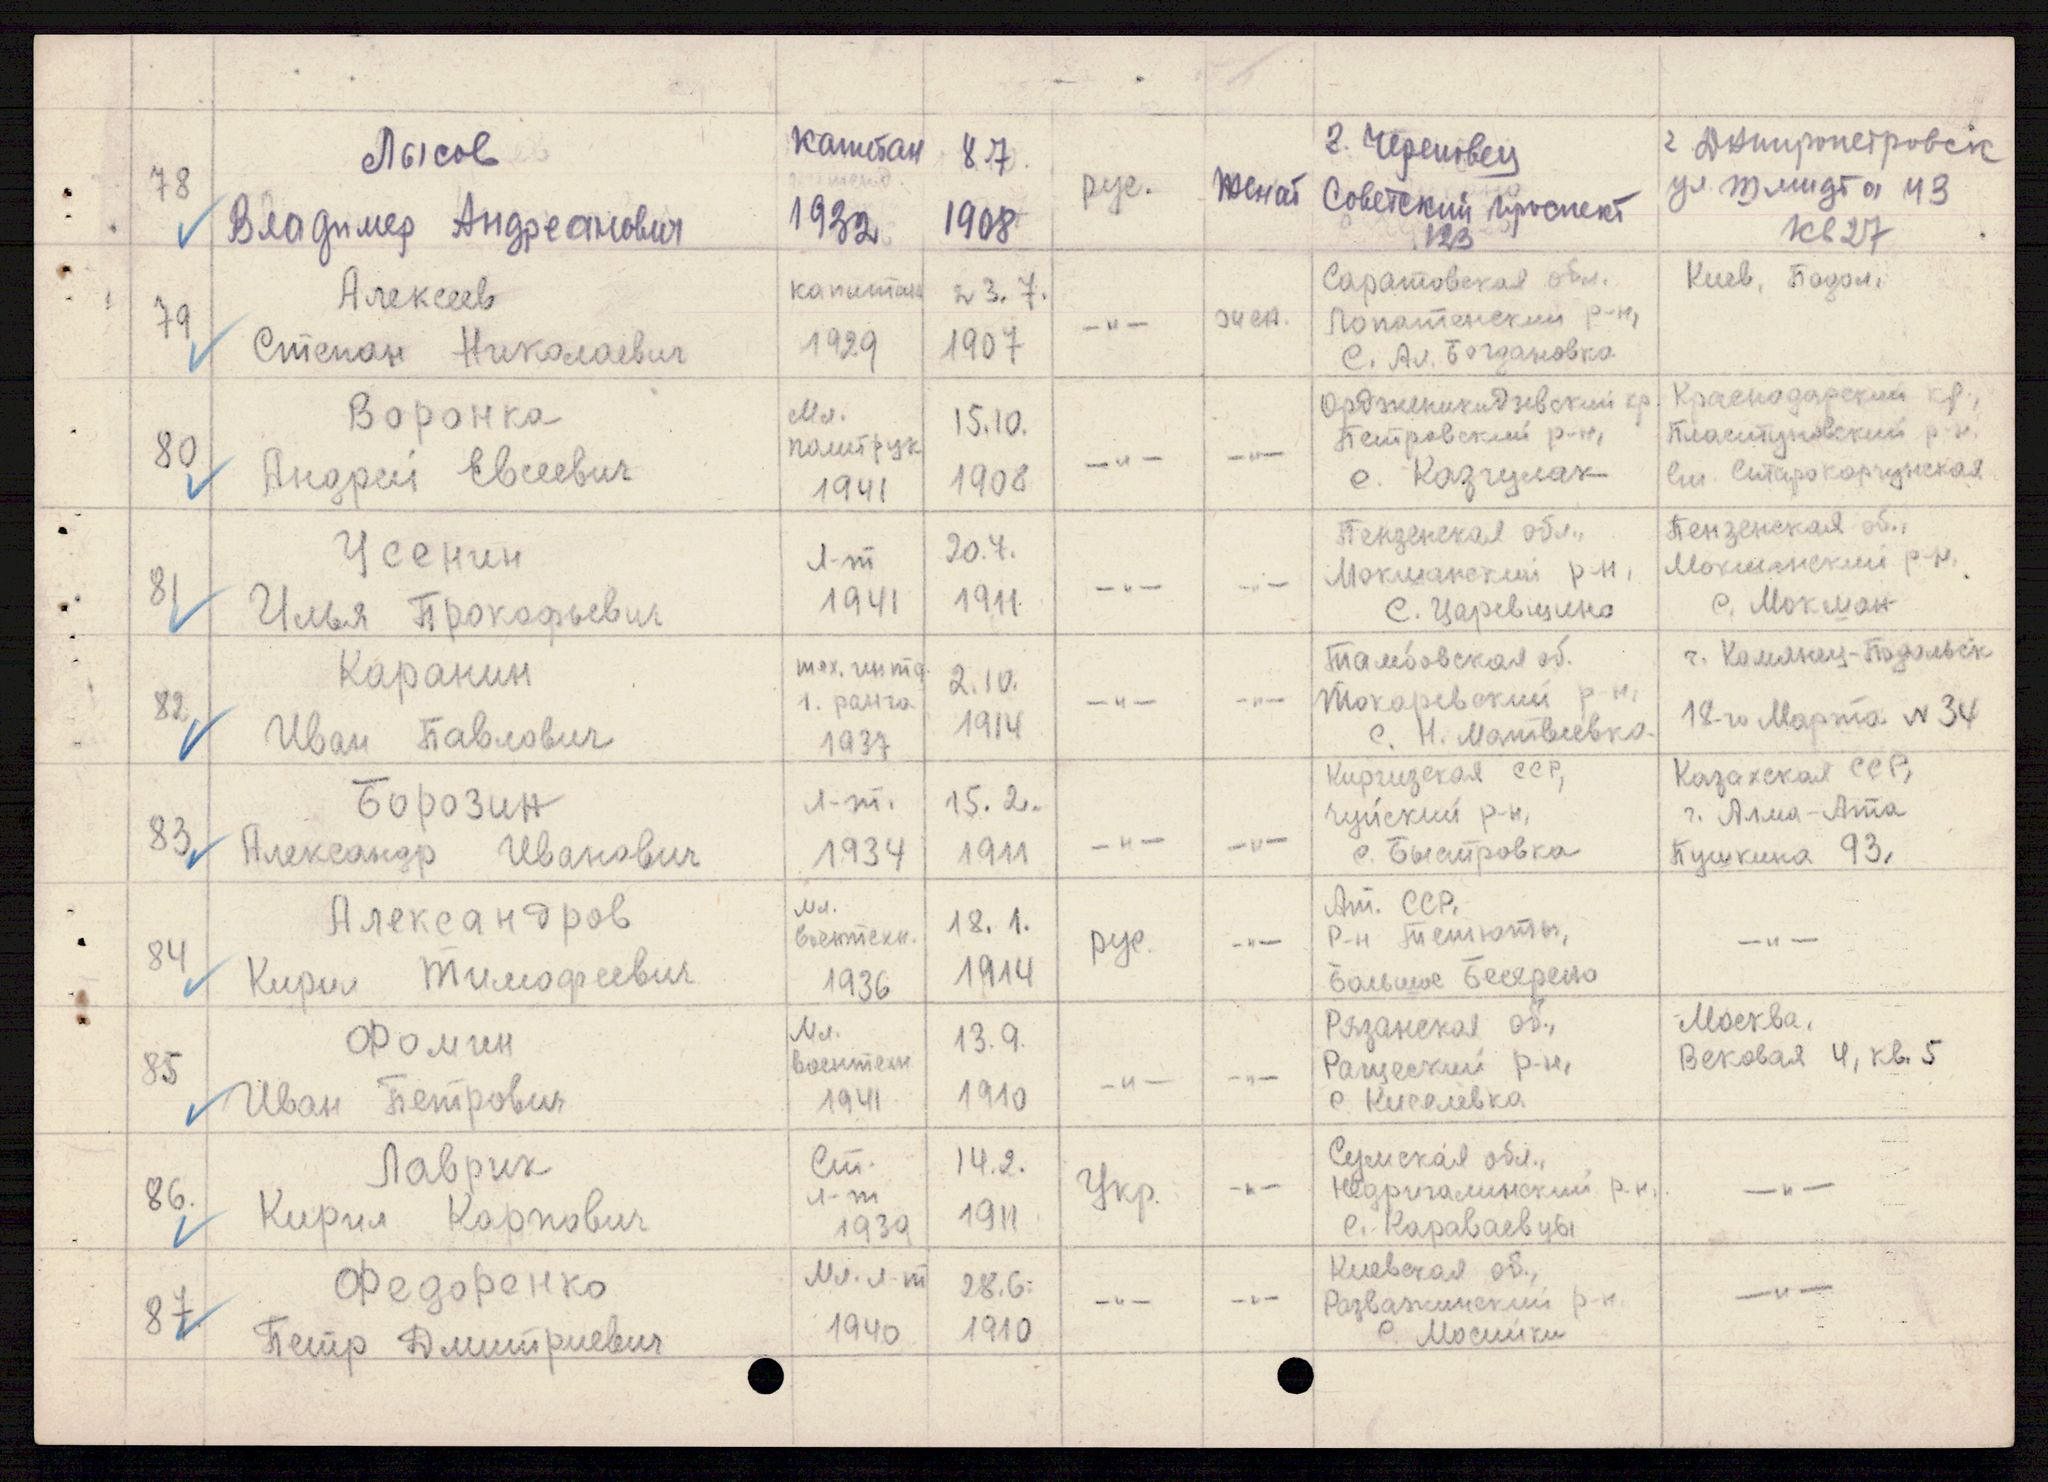 78
Лысов
Владимер Андреанович
капитан
1932
8.7.
1908
рус.
женат
г. Череповец
Советский проспект
123
г Днипропетровск
ул Шмидта 43
кв 27
79
Алексеев
Степан Николаевич
капитан
1929
23.7.
1907
—"—
жен.
Саратовская обл.
Лопатенский р-н,
с. Ал. Богдановка
Киев, Подол,
80
Воронка
Андрей Евсеевич
Мл.
политрук
1941
15.10.
1908
—"—
—"—
Орджоникидзевский кр.
Петровский р-н,
с. Казгулак
Краснодарский кр.,
Пластуновский р-н.
Ст. Старокорсунская
81
Усенин
Илья Прокофьевич
Л-т
1941
20.7.
1911
—"—
—"—
Пензенская обл.,
Мокшанский р-н,
с. Царевщино
Пензенская об.,
Мокшанский р-н.
с. Мокшан
82
Каранин
Иван Павлович
тех. интд.
1. ранга
1937
2.10.
1914
—"—
—"—
Тамбовская об.
Токаревский р-н,
с. Н. Матвеевка
г. Камянец-Подольск
18-го Марта № 34
83
Борозин
Александр Иванович
л-т.
1934
15.2.
1911
—"—
—"—
Киргизская ССР,
Чуйский р-н,
с. Быстровка
Казахская ССР,
г. Алма-Ата
Пушкина 93,
84
Александров
Кирил Тимофеевич
мл.
воентехн.
1936
18.1.
1914
рус.
—"—
Ат. ССР,
р-н Тетюты,
Большое
—"—
85
Фомин
Иван Петрович
Мл.
воентехн
1941
13.9.
1910
—"—
—"—
Рязанская об.,
р-н,
с Киселевка
Москва,
Вековая 4, кв. 5
86.
Лаврик
Кирил Карпович
Ст.
л-т
1939
14.2.
1911
Укр.
—"—
Сумская обл.,
Недригалинский р-н,
с. Караваевцы
—"—
87
Федоренко
Петр Дмитриевич
Мл. л-т
1940
28.6.
1910
—"—
—"—
Киевская об.,
Розважинский р-н.
с. Мосийки
—"—